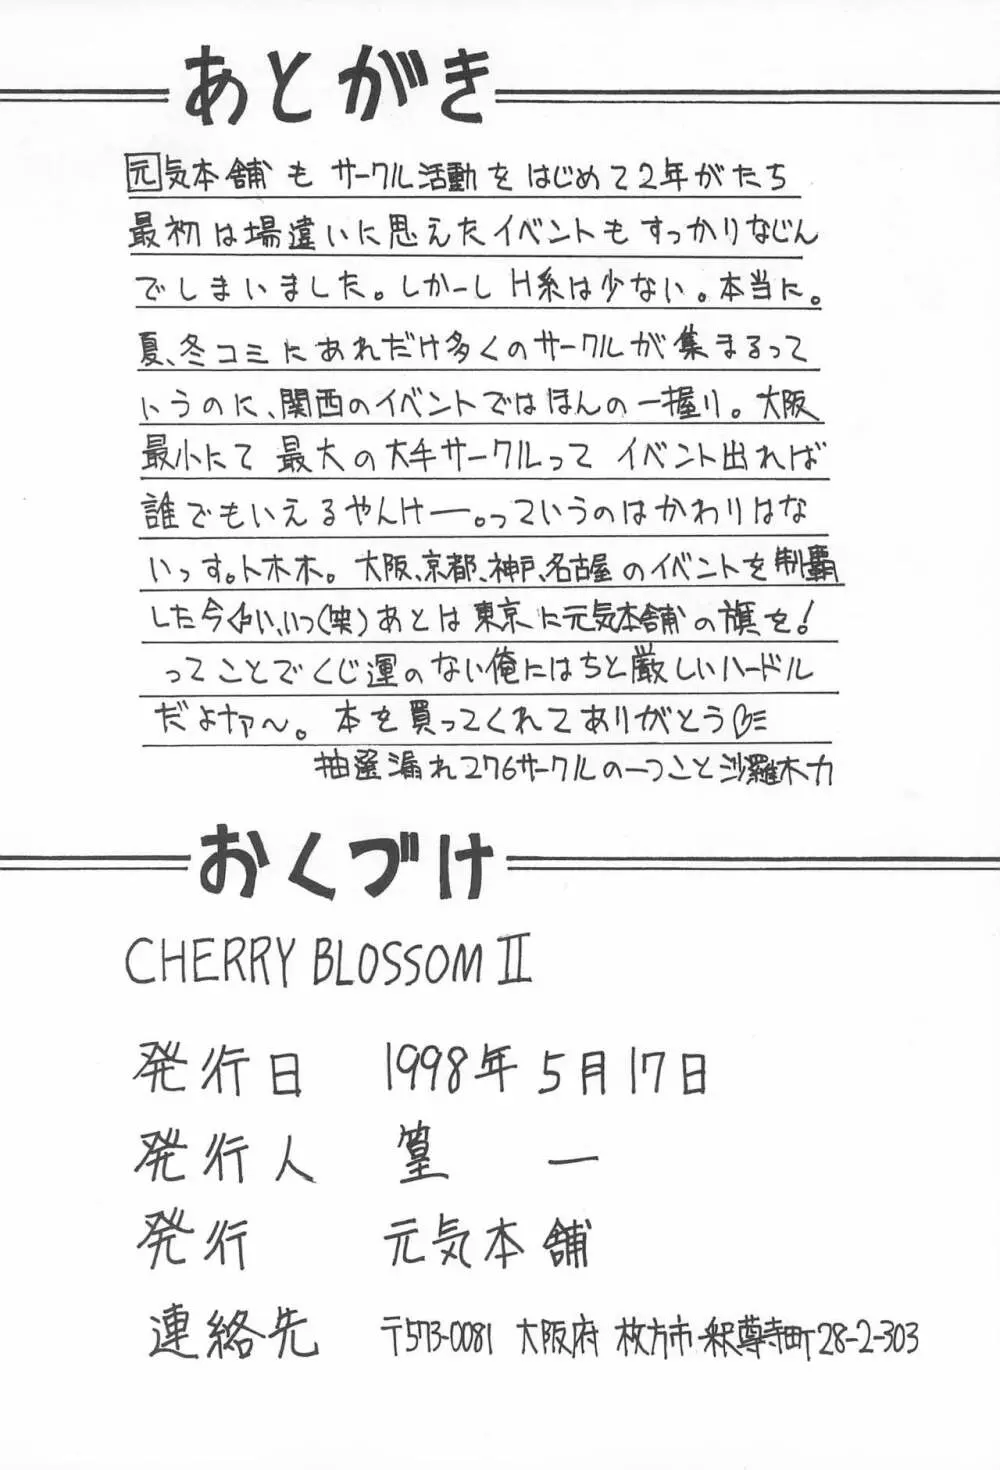 あとがき
元気本舗も サークル活動をはじめて2年がたち
最初は場違いに思えたイベントもすっかりなじん
でしまいました。しかーしH系は少ない。本当に。
夏、冬コミにあれだけ多くのサークルが集まるって
いうのに、関西のイベントではほんの一握り。大阪
最小にて 最大の大手サークルって イベント出れば
誰でもいえるやんけー。っていうのはかわりはな
いっす。トホホ。大阪、京都、神戸、名古屋のイベントを制覇
した今(笑)あとは東京に元気本舗の旗を!
ってことでくじ運のない俺にはちと厳しいハードル
だよナァ〜。本を買ってくれてありがとう
抽選漏れ276サークルの一つこと沙羅木力
おくづけ
CHERRY BLOSSOM II
発行日 1998年5月17日
発行人 篁 一
発行 元気本舗
連絡先 〒573-0081 大阪府 枚方市釈尊寺町28-2-303